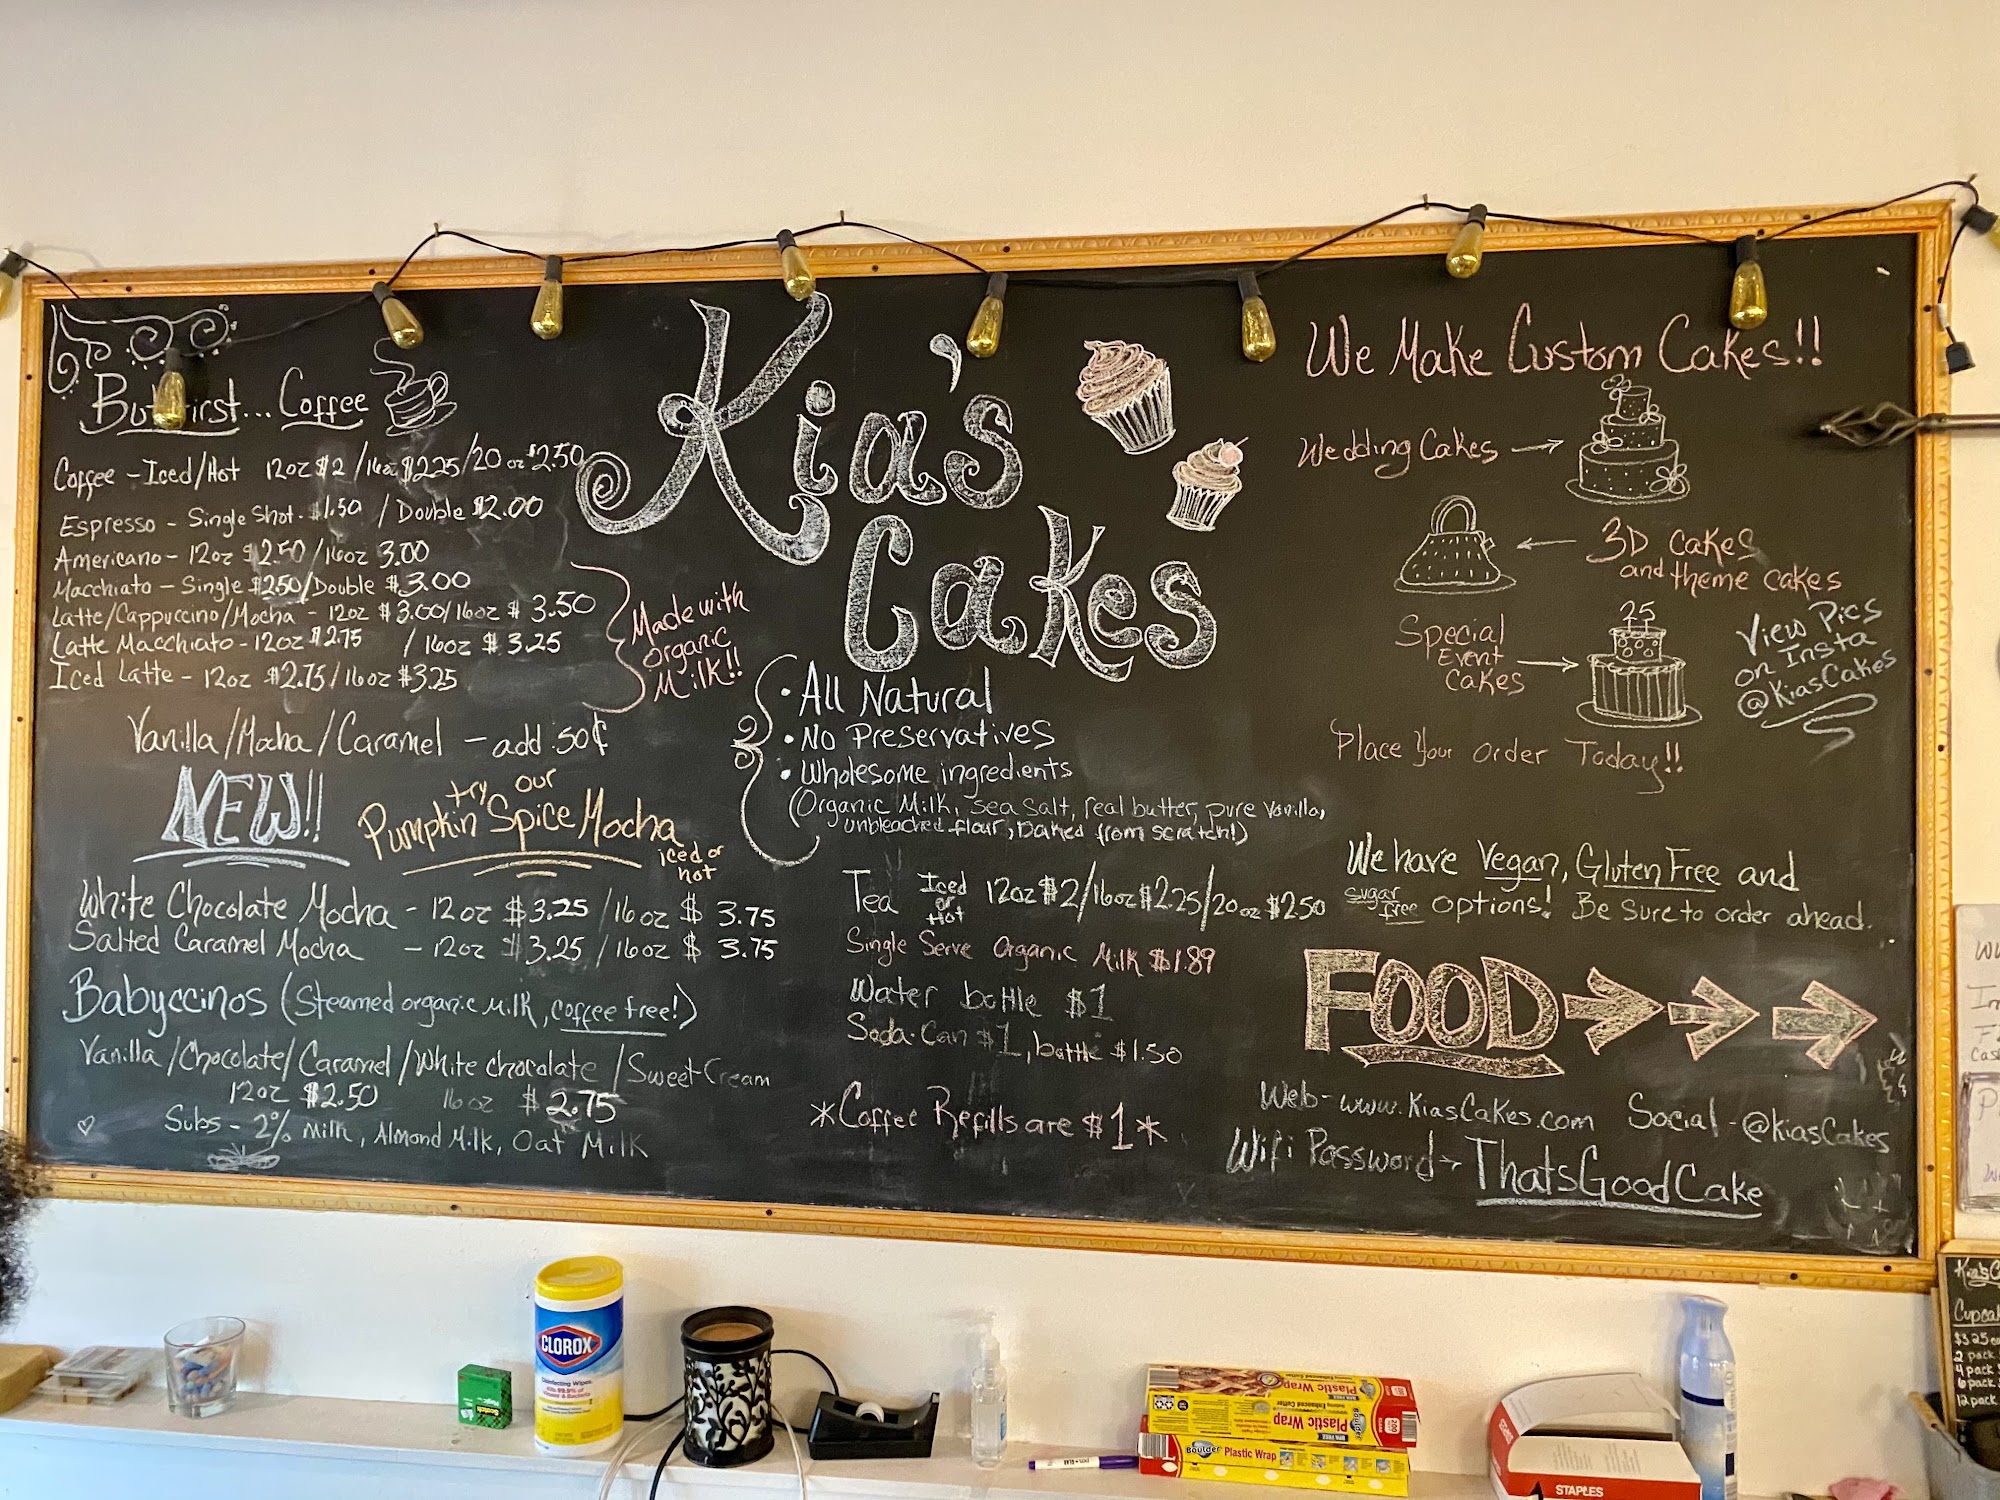 But First... Coffee
Coffee - Iced/Hot 12oz $2 /16oz $2.25/20 oz $2.50
Espresso - Single Shot - $1.50 / Double $2.00
Americano - 12oz $2.50 /16oz 3.00
Macchiato - Single $2.50/Double $3.00
Latte/Cappuccino/Mocha - 12oz $3.00/16oz $3.50
Latte Macchiato - 12oz $2.75 / 16oz $3.25
Iced Latte - 12oz $2.75/16oz $3.25
Made with
organic
Milk!!
Vanilla/Mocha/Caramel - add .50¢
NEW!!
try our
Pumpkin Spice Mocha
iced or
hot
White Chocolate Mocha - 12oz $3.25 /16oz $3.75
Salted Caramel Mocha - 12oz $3.25 /16oz $3.75
Babyccinos (Steamed organic milk, coffee free!)
Vanilla/Chocolate/Caramel/White chocolate/Sweet Cream
12oz $2.50 16oz $2.75
Subs - 2% Milk, Almond Milk, Oat Milk
Kia's
Cakes
• All Natural
• No Preservatives
• Wholesome ingredients
(Organic Milk, sea salt, real butter, pure vanilla,
unbleached flour, baked from scratch!)
Tea Iced or Hot 12oz $2/16oz $2.25/20oz $2.50
Single Serve Organic Milk $1.89
Water bottle $1
Soda-Can $1, bottle $1.50
*Coffee Refills are $1*
We Make Custom Cakes!!
Wedding Cakes
3D cakes
and theme cakes
25
Special
Event
cakes
View Pics
on Insta
@KiasCakes
Place Your order Today!!
We have Vegan, Gluten Free and
sugar free options! Be sure to order ahead.
FOOD
Web - www.KiasCakes.com Social - @kiasCakes
Wifi Password → ThatsGoodCake
Kia's
$3.25
2 pack
4 pack
6 pack
12 pack
CLOROX
Disinfecting Wipes
Scotch
Plastic Wrap
Plastic Wrap
Boulder Plastic Wrap
STAPLES